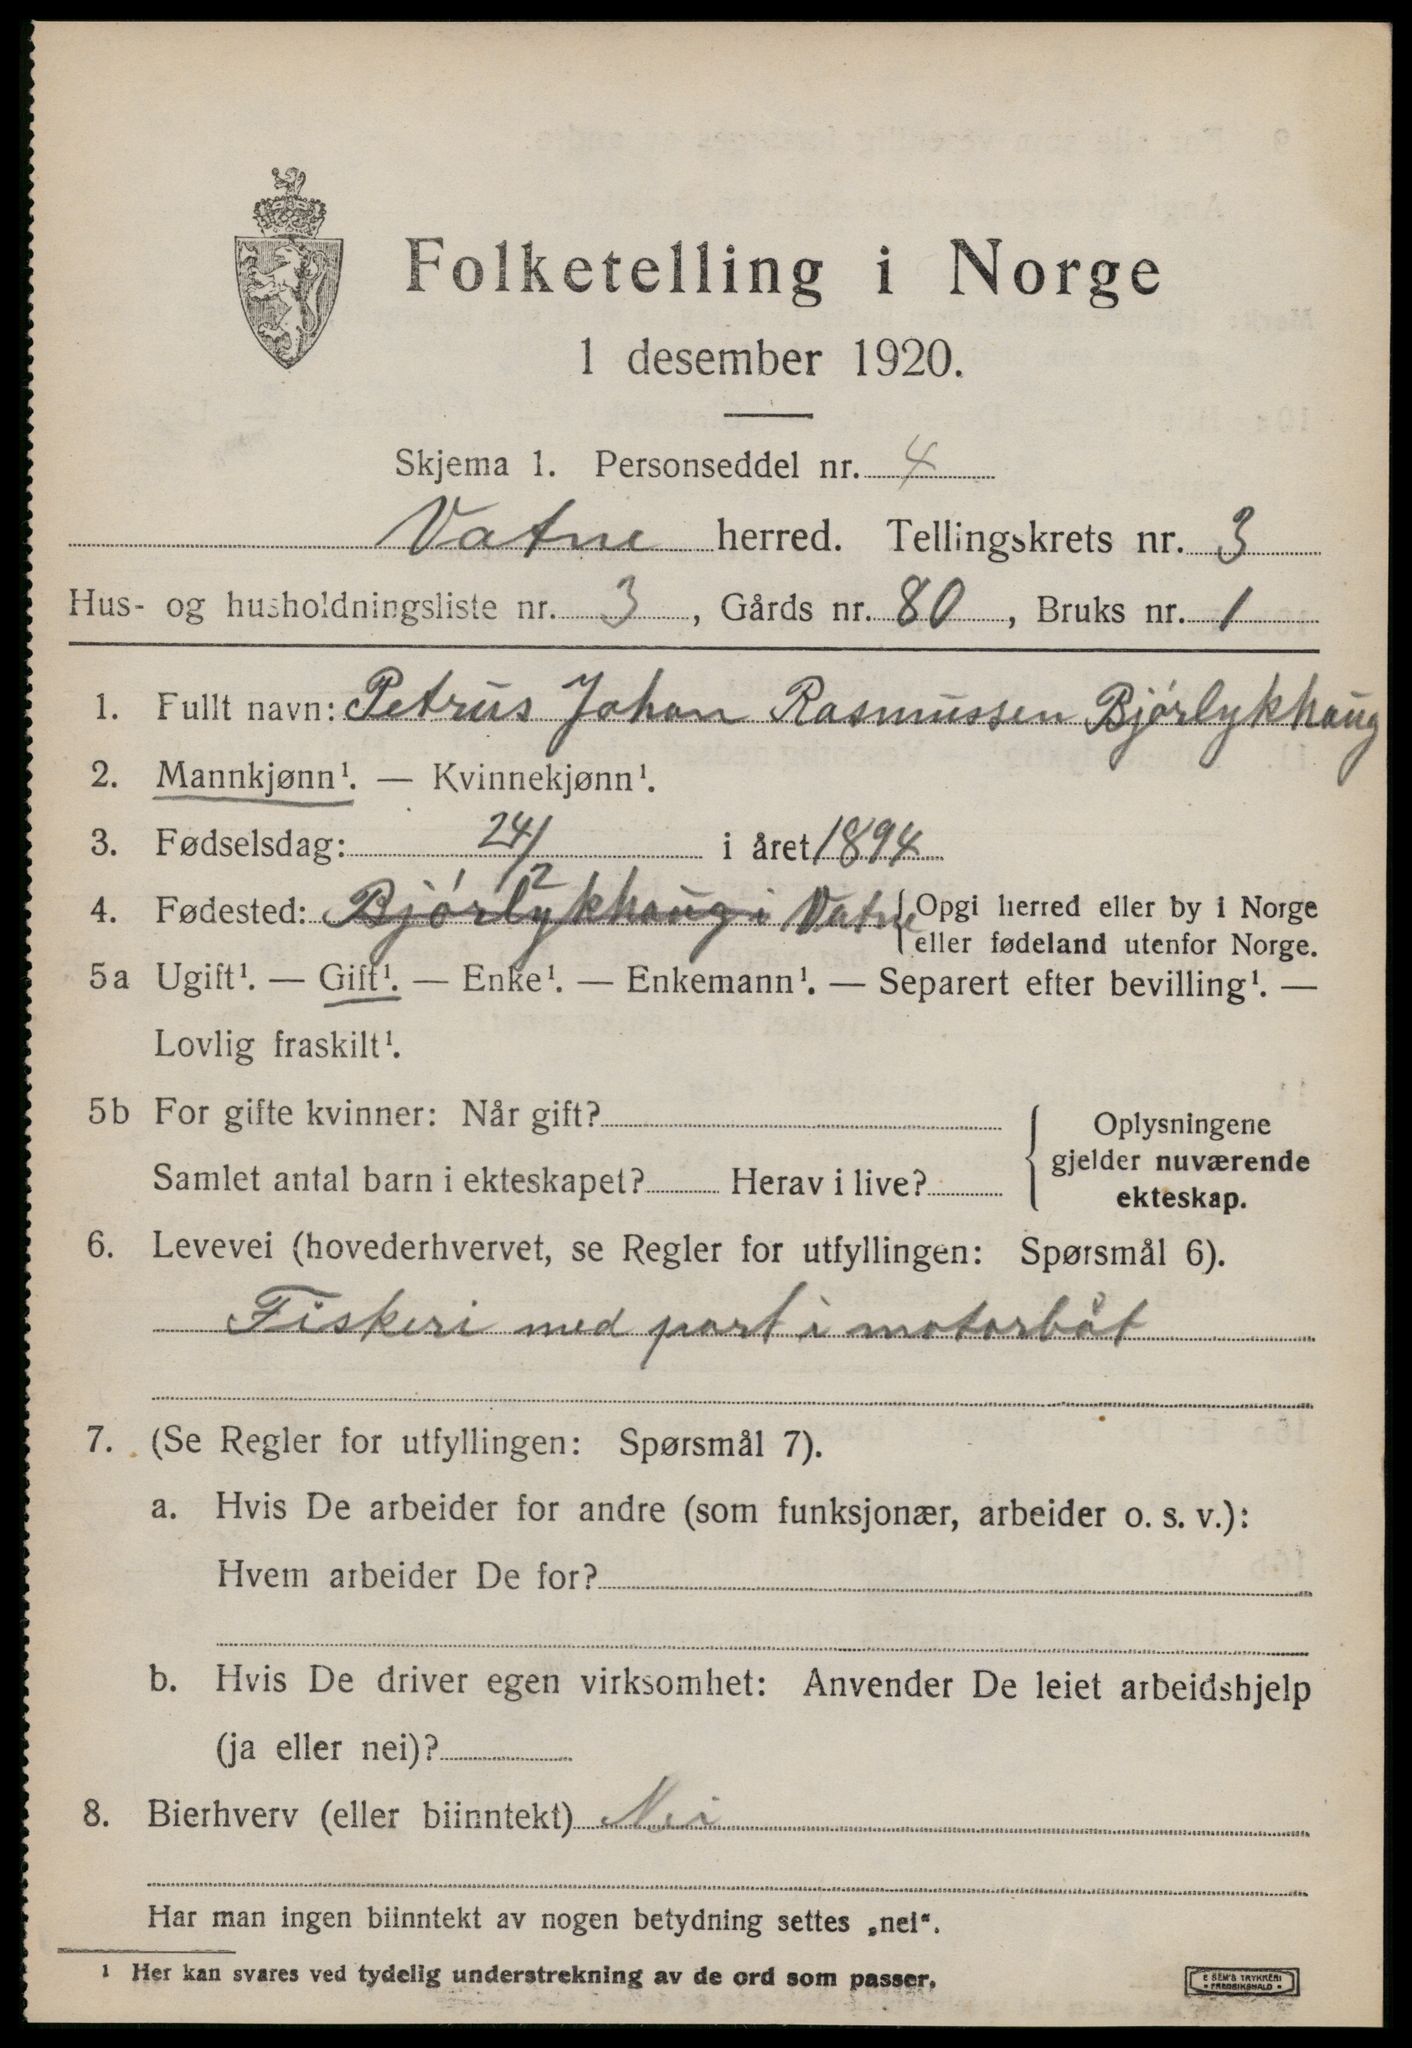 Folketelling i Norge
1 desember 1920.
Skjema 1. Personseddel nr. 4
Vatne herred. Tellingskrets nr. 3
Hus- og husholdningsliste nr. 3, Gårds nr. 80, Bruks nr. 1
1. Fullt navn: Petrus Johan Rasmussen Bjørlykhaug
2. Mannkjønn¹. — Kvinnekjønn¹.
3. Fødselsdag: 24/2 i året 1894
4. Fødested: Bjørlykhaug i Vatne { Opgi herred eller by i Norge
eller fødeland utenfor Norge.
5a Ugift¹. — Gift¹. — Enke¹. — Enkemann¹. — Separert efter bevilling¹. —
Lovlig fraskilt¹.
5b For gifte kvinner: Når gift?
Samlet antal barn i ekteskapet? Herav i live?
{ Oplysningene
gjelder nuværende
ekteskap.
6. Levevei (hovederhvervet, se Regler for utfyllingen: Spørsmål 6).
Fiskeri med part i motorbåt
7. (Se Regler for utfyllingen: Spørsmål 7).
a. Hvis De arbeider for andre (som funksjonær, arbeider o. s. v.):
Hvem arbeider De for?
b. Hvis De driver egen virksomhet: Anvender De leiet arbeidshjelp
(ja eller nei)?
8. Bierhverv (eller biinntekt) Nei
Har man ingen biinntekt av nogen betydning settes „nei“.
¹ Her kan svares ved tydelig understrekning av de ord som passer.
E SEM'S TRYKKERI
• FREDRIKSHALD •